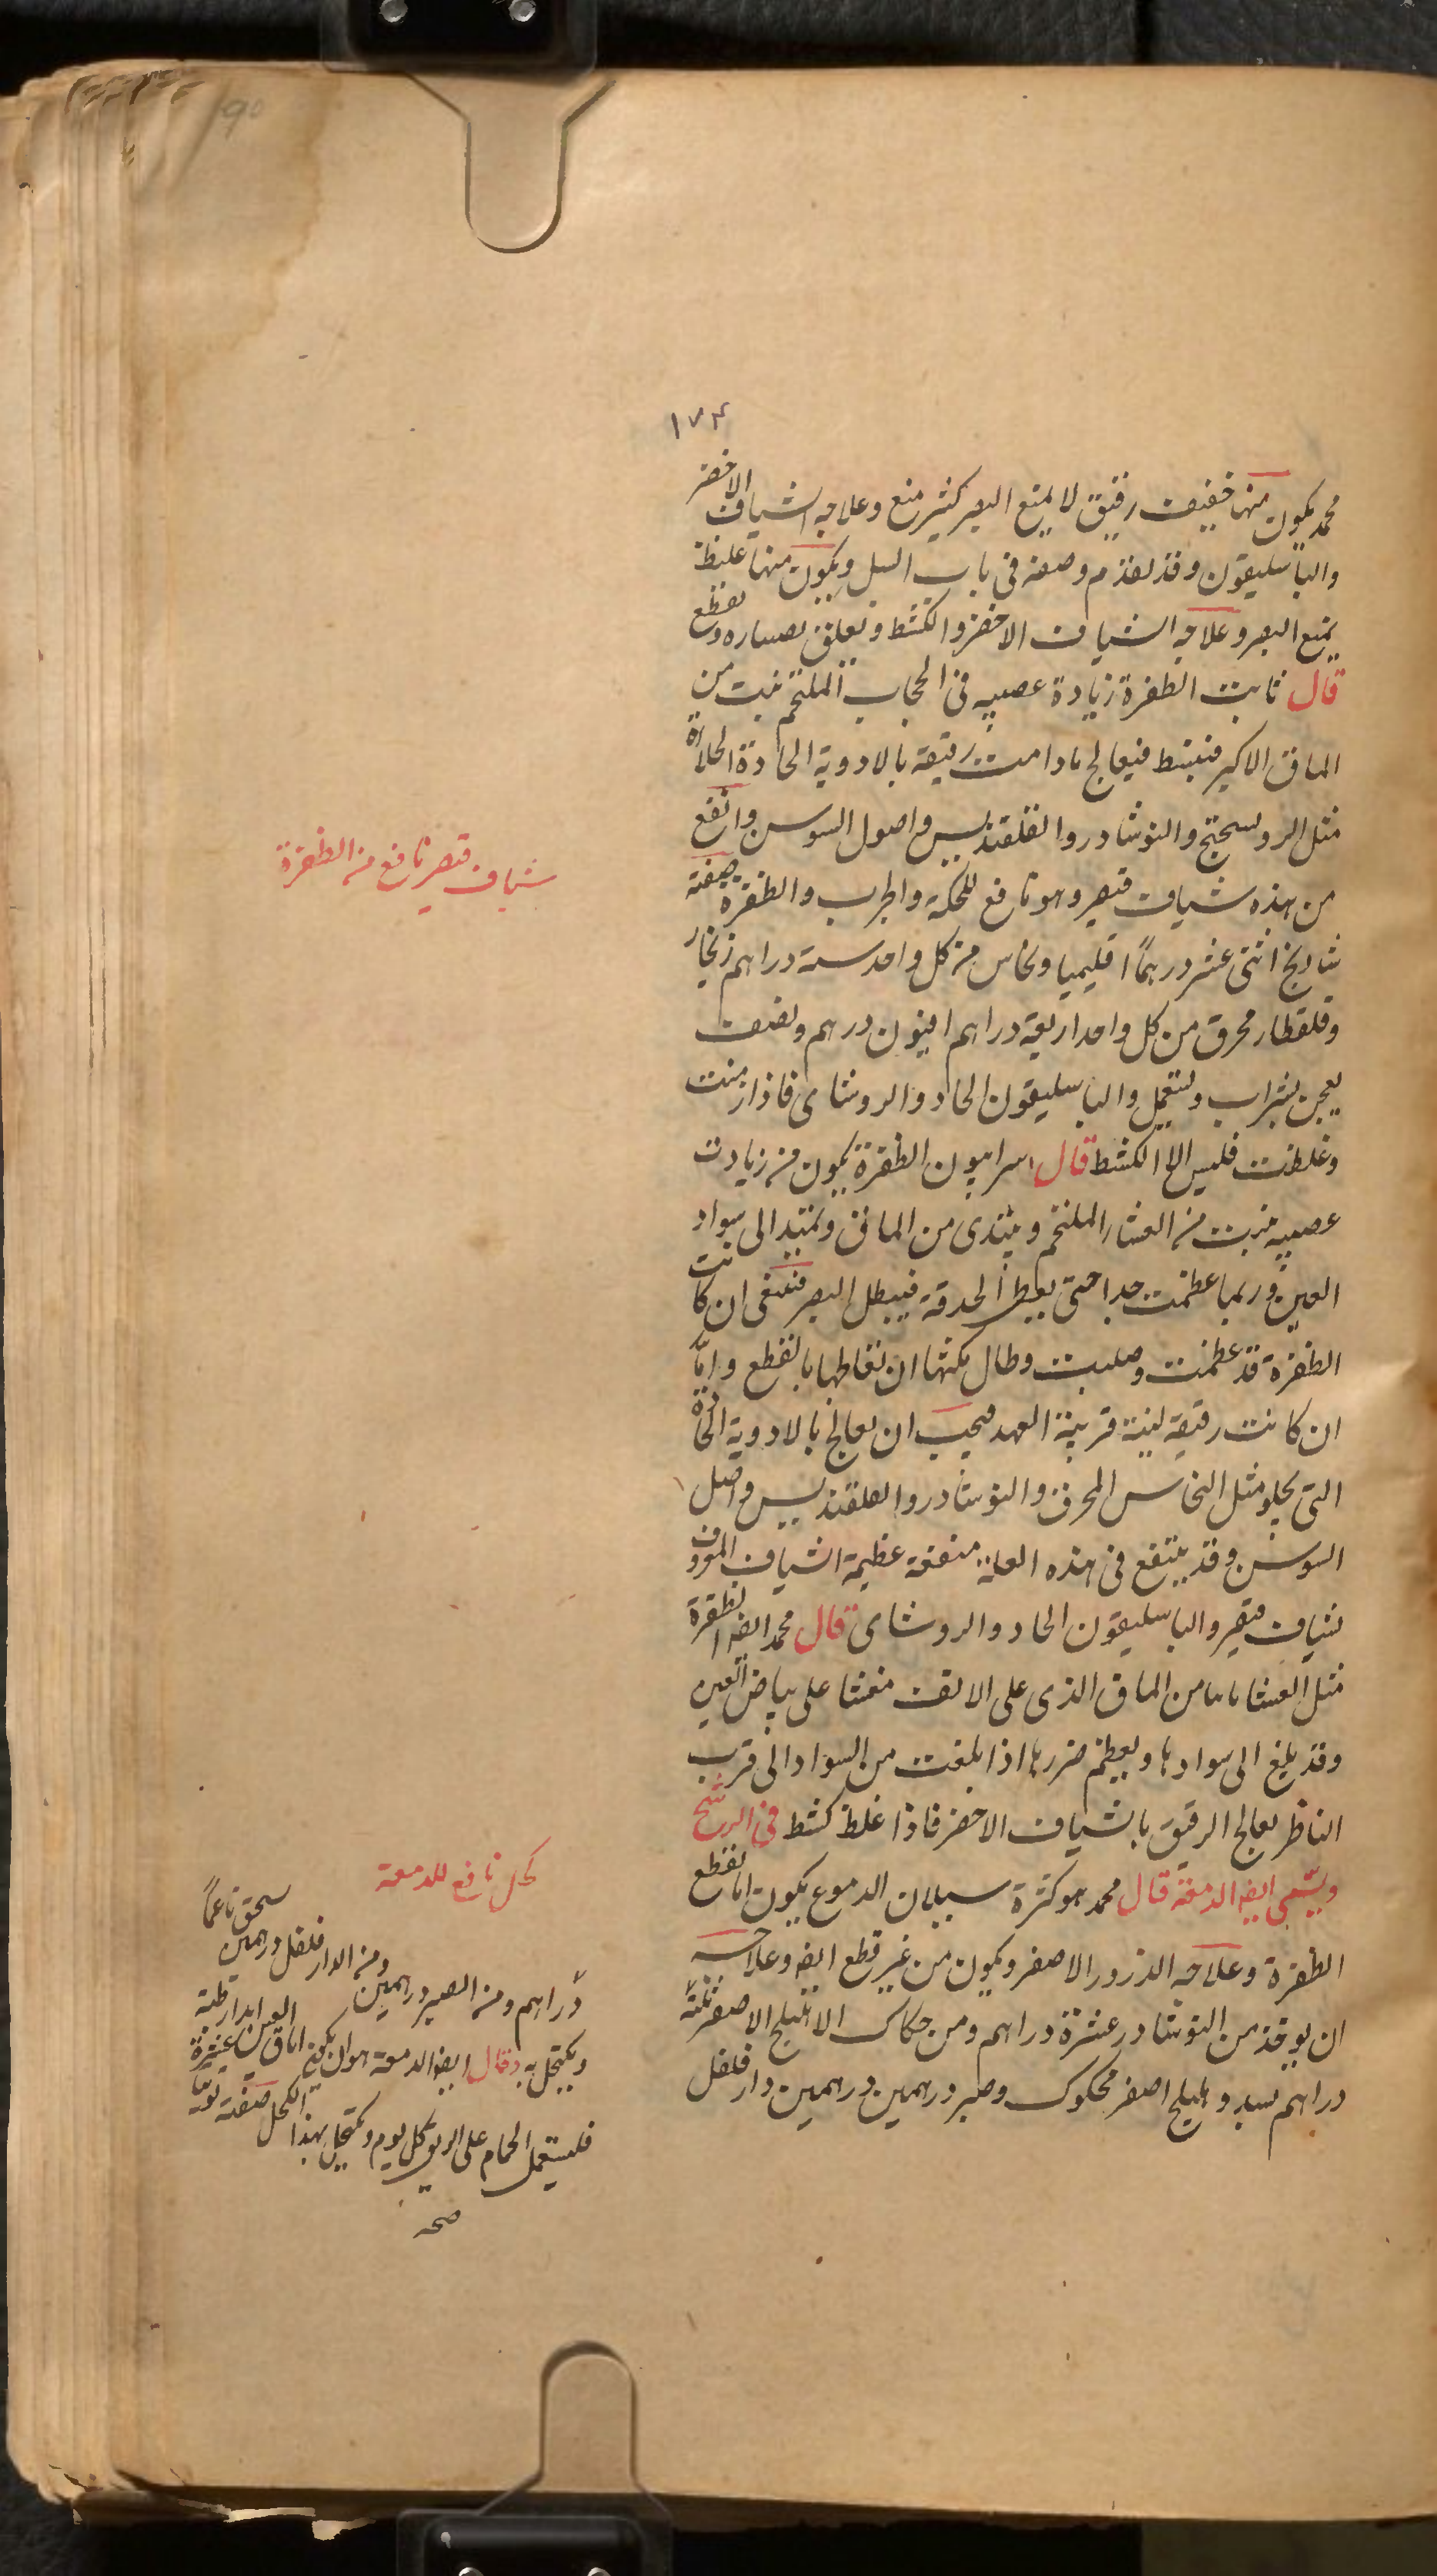 ١٧٤
محمد يكون منها خفيف رقيق لا يمنع البصر كثير منع وعلاجه الشياف الاخضر
والباسليقون وقد تقدم وصفه فى باب السبل ويكون منها غليظ
يمنع البصر وعلاجه الشياف الاخضر والكشط وتعلق بصناره وتقطع
قال ثابت الظفرة زيادة عصبيه فى الحجاب الملتحم تنبت من
الماق الاكبر فتنبسط فيعالج مادامت رقيقة بالادوية الحادة الجلاءة
مثل الروسختج والنوشادر والقلقنديس واصول السوسن وانفع
من هذه شياف قيصر وهو نافع للحكة والجرب والظفرة صفته
شادنج اثنى عشر درهمًا اقليميا ونحاس من كل واحد ستة دراهم زنجار
وقلقطار محرق من كل واحد اربعة دراهم افيون درهم ونصف
يعجن بشراب ويستعمل والباسليقون الحاد والروشناى فاذا ازمنت
وغلظت فليس الا الكشط قال سرابيون الظفرة يكون من زيادت
عصبيه تنبت من الغشاء الملتحم ويبتدى من الماق وتمتد الى سواد
العين وربما عظمت جدا حتى يغطى الحدقة فيبطل البصر فينبغى ان كانت
الظفرة قد عظمت وصلبت وطال مكثها ان تعالجها بالقطع واما
ان كانت رقيقة لينة قريبة العهد فيجب ان يعالج بالادوية الحادة
التى يجلو مثل النحاس المحرق والنوشادر والقلقنديس واصل
السوسن وقد ينتفع فى هذه العلة منفعة عظيمة الشياف المعروف
بشياف قيصر والباسليقون الحاد والروشناى قال محمد ايضا الظفرة
مثل الغشا ما من الماق الذى على الانف منغشا على بياض العين
وقد يبلغ الى سوادها ويعظم ضررها اذا بلغت من السواد الى قرب
الناظر يعالج الرقيق بالشياف الاخضر فاذا غلظ كشط فى الرشح
ويسمى ايضا الدمعة قال محمد هو كثرة سيلان الدموع يكون اما لقطع
الظفرة وعلاجه الذرور الاصفر ويكون من غير قطع ايضا وعلاجه
ان يوخذ من النوشادر عشرة دراهم ومن حكاك الاهليلج الاصفر ثلثة
دراهم وهليلج اصفر محكوك وصبر درهمين درهمين دارفلفل
شياف قيصر نافع من الظفرة
كحل نافع للدمعة
دراهم ومن الصبر درهمين ومن الدارفلفل درهمين سحق ناعمًا
ويكتحل به وقال ايضا الدمعة هو ان يكون اماق العين ابدا رطبة
فليستعمل الحمام على الريق كل يوم ويكتحل بهذا الكحل صفته توتيا
صحه